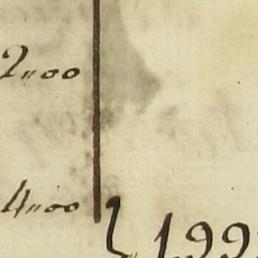 2〃00
4〃00
199